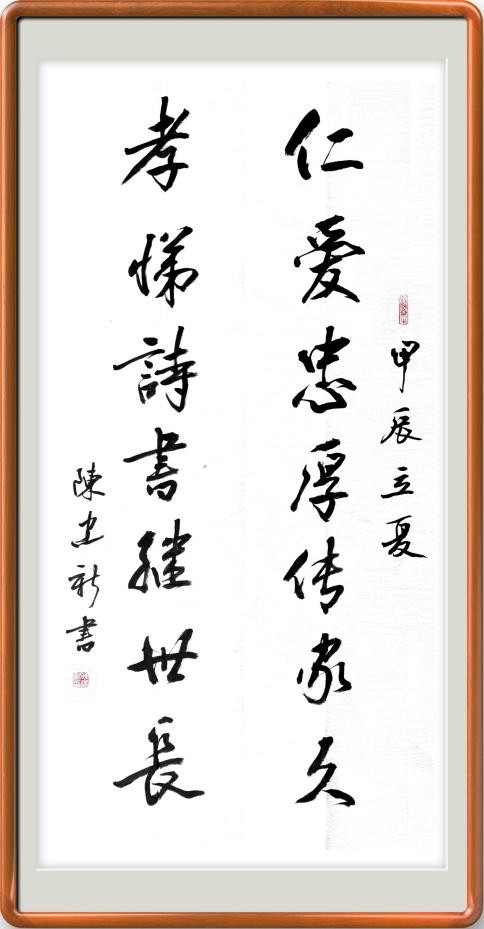 甲辰立夏
仁愛忠厚传家久
孝悌詩書继世長
陳建新書